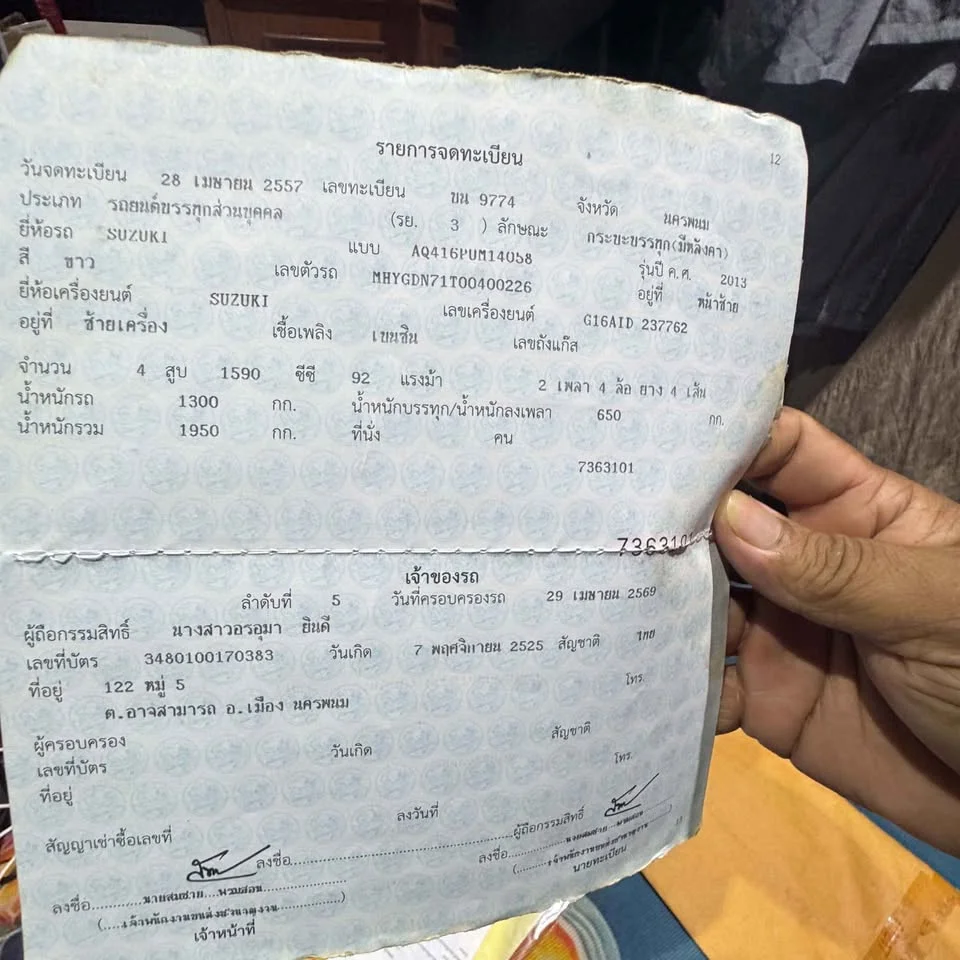 12
รายการจดทะเบียน
วันจดทะเบียน 28 เมษายน 2557 เลขทะเบียน ขน 9774 จังหวัด นครพนม
ประเภท รถยนต์บรรทุกส่วนบุคคล (รย. 3 ) ลักษณะ กระบะบรรทุก(มีหลังคา)
ยี่ห้อรถ SUZUKI แบบ AQ416PUM14058 รุ่นปี ค.ศ. 2013
สี ขาว เลขตัวรถ MHYGDN71T00400226 อยู่ที่ หน้าซ้าย
ยี่ห้อเครื่องยนต์ SUZUKI เลขเครื่องยนต์ G16AID 237762
อยู่ที่ ซ้ายเครื่อง เชื้อเพลิง เบนซิน เลขถังแก๊ส
จำนวน 4 สูบ 1590 ซีซี 92 แรงม้า 2 เพลา 4 ล้อ ยาง 4 เส้น
น้ำหนักรถ 1300 กก. น้ำหนักบรรทุก/น้ำหนักลงเพลา 650 กก.
น้ำหนักรวม 1950 กก. ที่นั่ง คน
7363101
7363101
เจ้าของรถ
ลำดับที่ 5 วันที่ครอบครองรถ 29 เมษายน 2569
ผู้ถือกรรมสิทธิ์ นางสาวอรอุมา ยินดี
เลขที่บัตร 3480100170383 วันเกิด 7 พฤศจิกายน 2525 สัญชาติ ไทย
ที่อยู่ 122 หมู่ 5 โทร.
ต.อาจสามารถ อ.เมือง นครพนม
ผู้ครอบครอง
เลขที่บัตร วันเกิด สัญชาติ
ที่อยู่ โทร.
สัญญาเช่าซื้อเลขที่ ลงวันที่ ผู้ถือกรรมสิทธิ์
ลงชื่อ นายสมชาย...พรมสอน ลงชื่อ ลงชื่อ นายสมชาย...พรมสอน
(....เจ้าพนักงานขนส่งชำนาญงาน) (....เจ้าพนักงานขนส่งชำนาญงาน)
เจ้าหน้าที่ นายทะเบียน